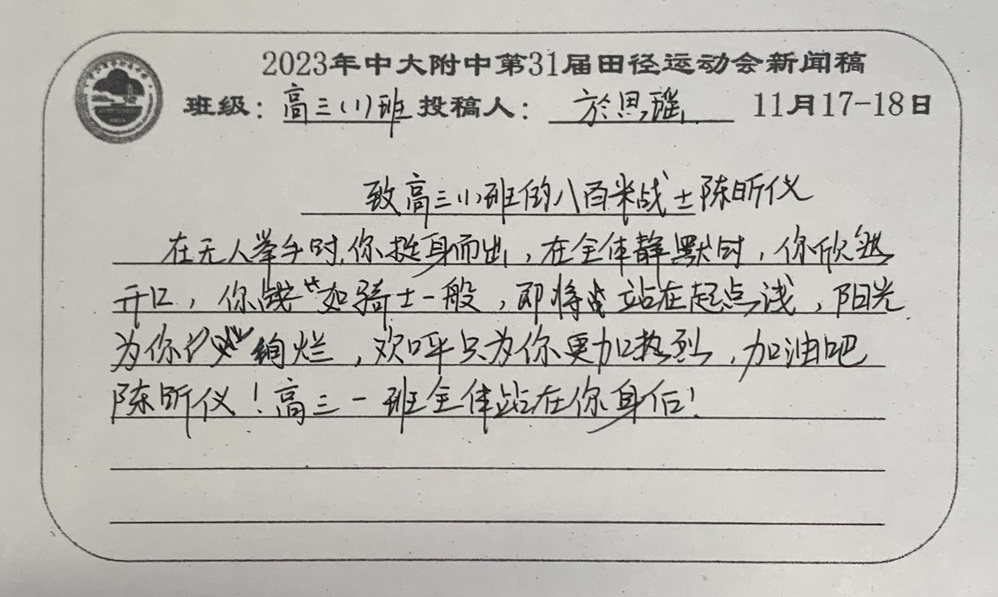 2023年中大附中第31届田径运动会新闻稿
班级：高三(1)班 投稿人：於思瑶 11月17-18日
致高三(1)班的八百米战士陈昕仪
在无人举手时,你挺身而出,在全体静默时,你欣然
开口,你 如骑士一般,即将 站在起点线,阳光
为你 绚烂,欢呼只为你更加热烈,加油吧
陈昕仪!高三一班全体站在你身后!